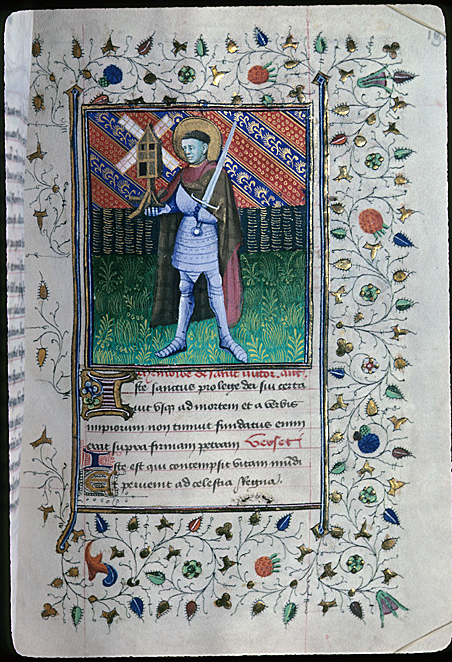 Memoire de saint victor. ant
Iste sanctus pro lege dei sui certa
uit usq; ad mortem et a verbis
impiorum non timuit fundatus enim
erat supra firmam petram Verset
Iste est qui contempsit vitam mundi
Et pervenit ad celestia Regna.